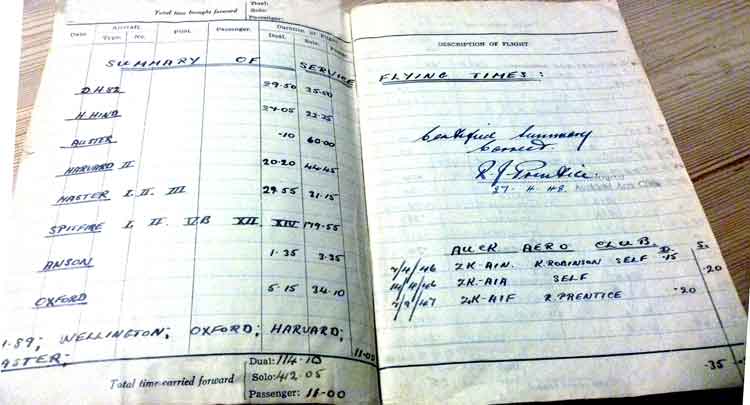 Total time brought forward
Dual:
Solo:
Passenger:
Date Aircraft. Type. No. Pilot. Passenger. Duration of Flight Dual. Solo. Passe
SUMMARY OF SERVICE
D.H.82 39.50 35.00
H. HIND 27.05 22.25
AUSTER .10 60.00
HARVARD II 20.20 44.45
MASTER I. II. III 29.55 21.15
SPITFIRE I. II. VB XII. XIV 179.55
ANSON 1.35 3.35
OXFORD 5.15 34.10
1.89; WELLINGTON; OXFORD; HARVARD;
ASTER; 11-00
Total time carried forward
Dual: 114.10
Solo: 412.05
Passenger: 11-00
DESCRIPTION OF FLIGHT
FLYING TIMES:
Certified Summary
Correct.
R.J. Prentice
27. 4. 48. Auckland Aero Club
AUCK AERO CLUB. D. S.
7/4/46 ZK-AIN. K.ROBINSON SELF .15
14/4/46 ZK-AIA SELF .20
7/9/47 ZK-AIF R.PRENTICE .20
.35